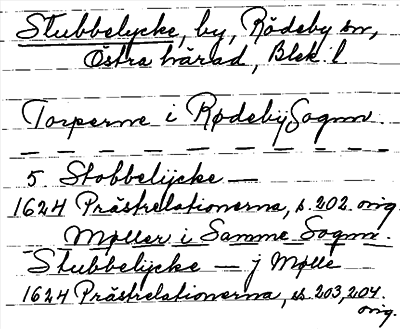 Stubbelycke, by, Rödeby sn,
Östra härad, Blek l
Torperne i RødebijSognn.
5 Stobbelijcke —
1624 Prästrelationerna, s. 202. orig.
Møller i Samme Sognn.
Stubbelijcke — j Mølle
1624 Prästrelationerna, s. 203, 204
orig.